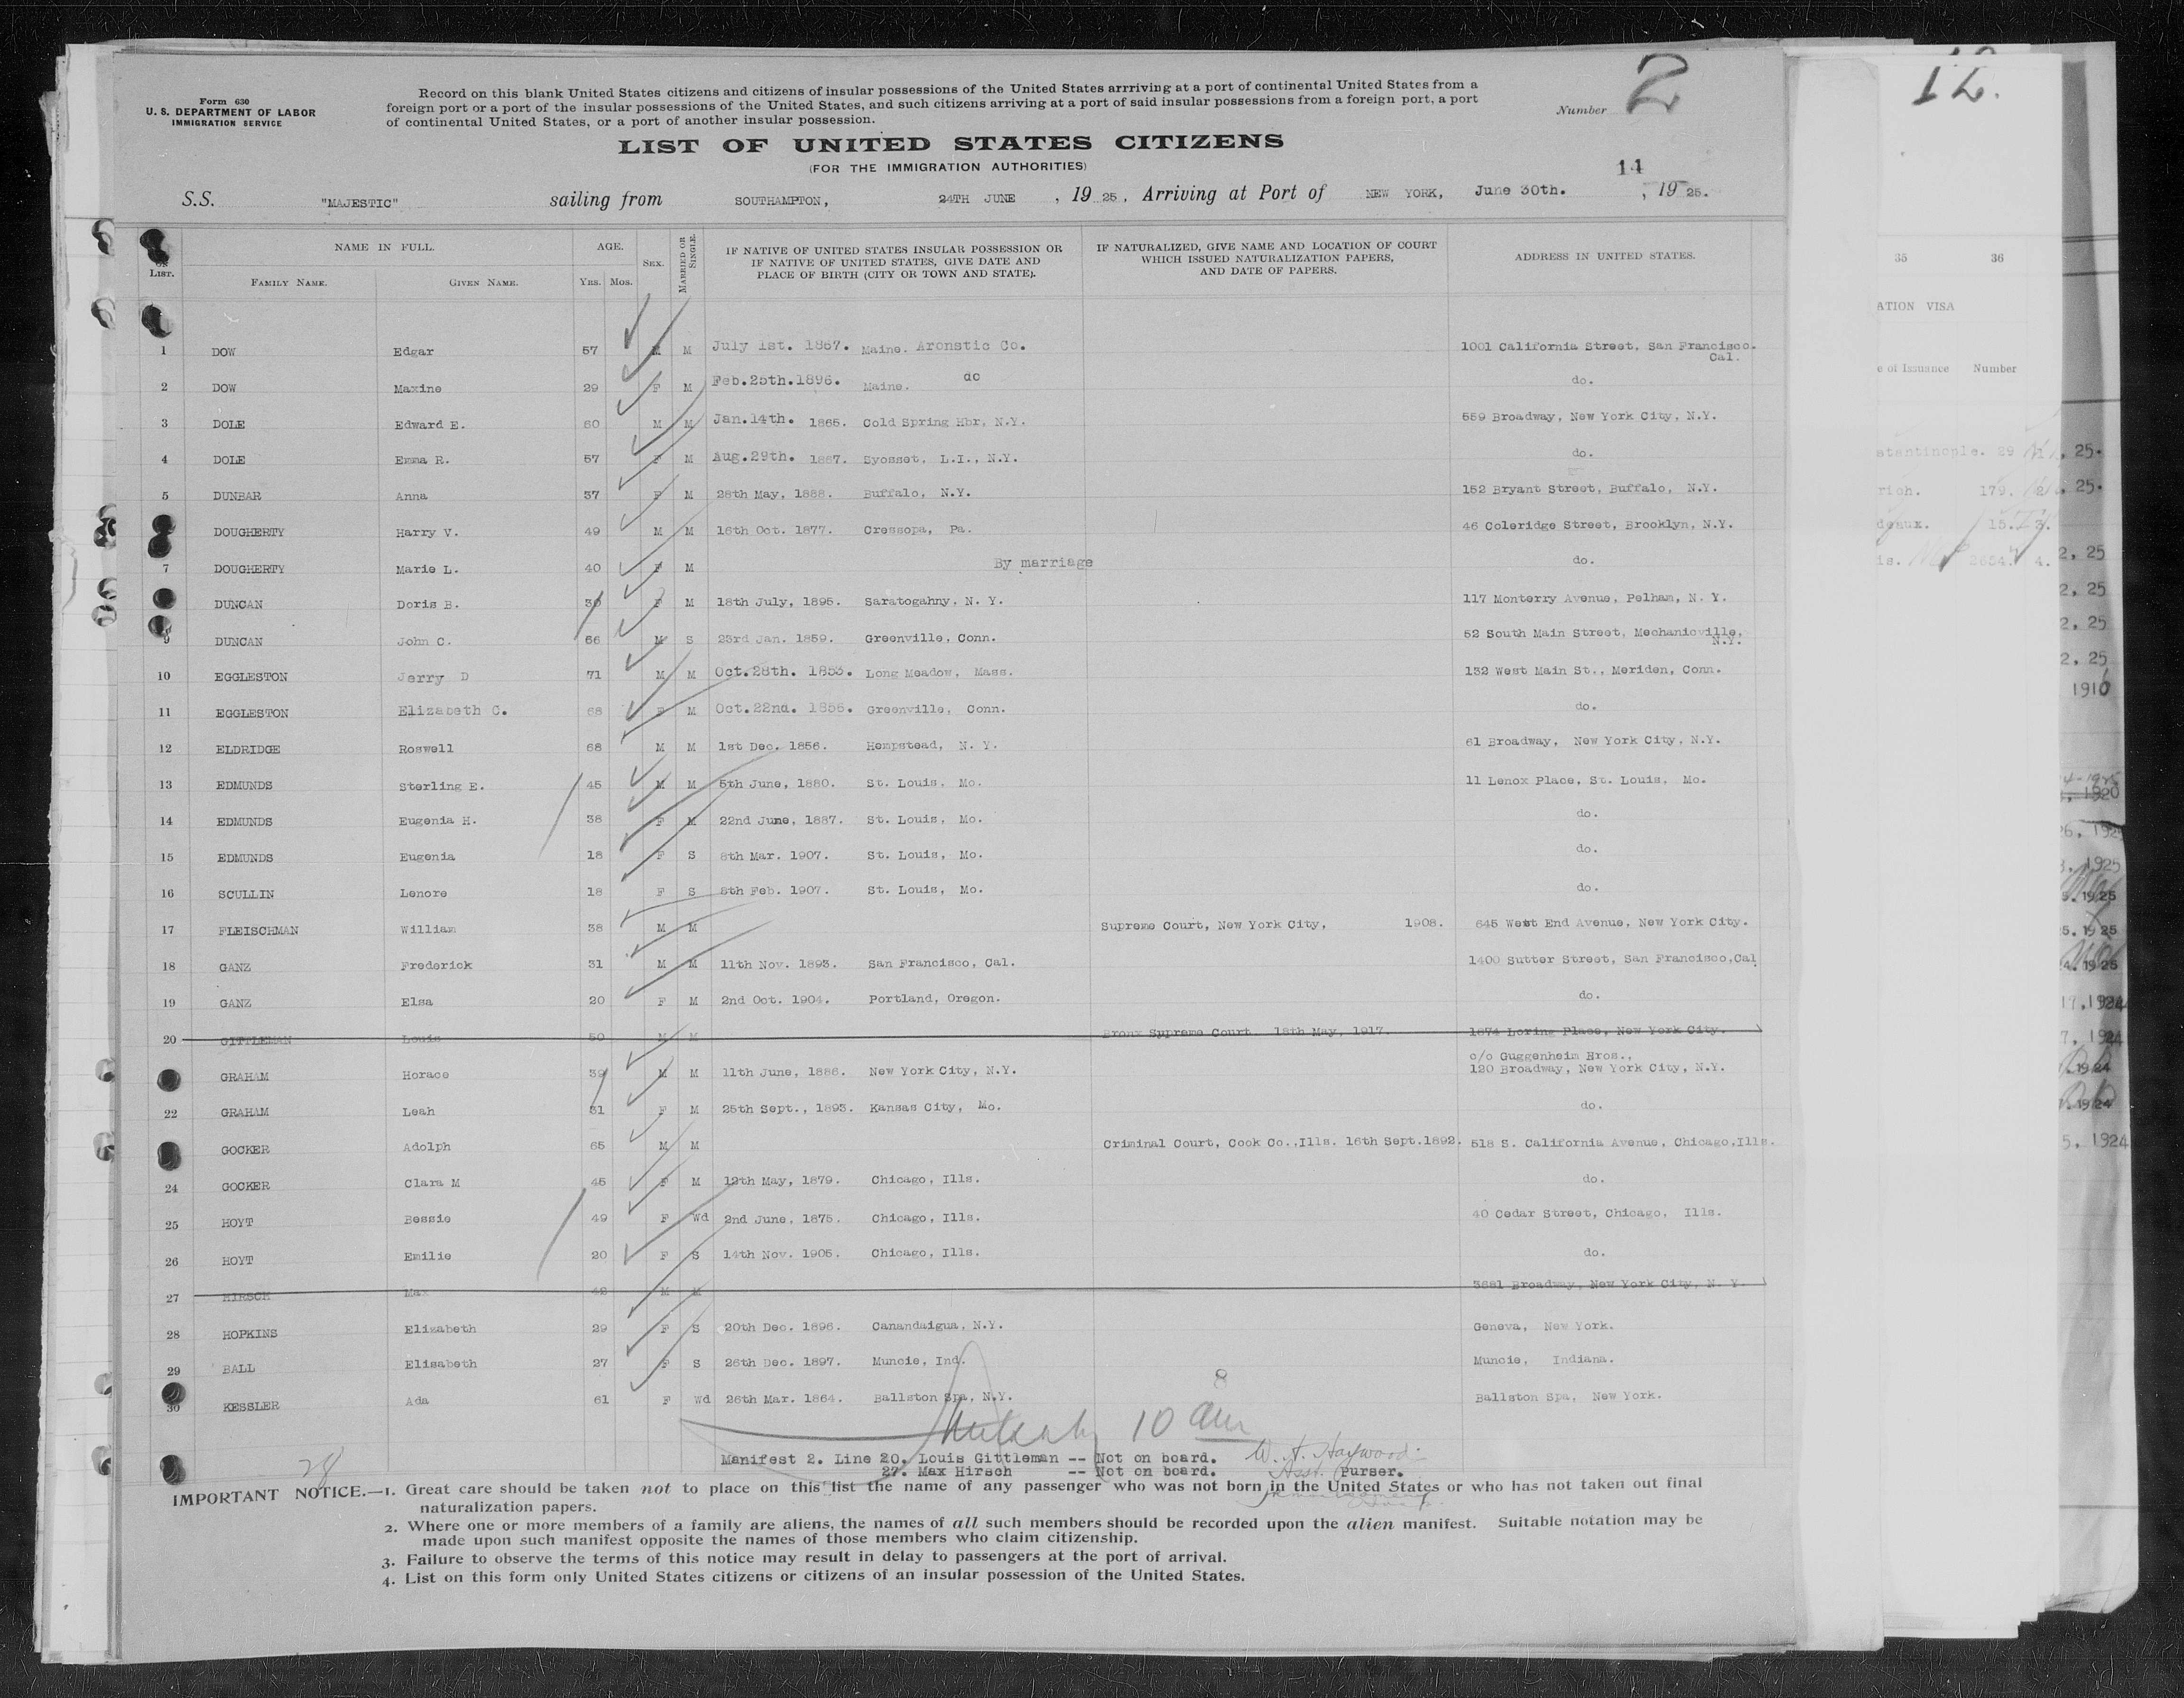 Form 630
U. S. DEPARTMENT OF LABOR
IMMIGRATION SERVICE
Record on this blank United States citizens and citizens of insular possessions of the United States arrriving at a port of continental United States from a
foreign port or a port of the insular possessions of the United States, and such citizens arriving at a port of said insular possessions from a foreign port, a port
of continental United States, or a port of another insular possession.
Number 2
LIST OF UNITED STATES CITIZENS
(FOR THE IMMIGRATION AUTHORITIES)
14
S.S. "MAJESTIC" sailing from SOUTHAMPTON, 24TH JUNE , 19 25, Arriving at Port of NEW YORK, June 30th. , 19 25.
LIST. NAME IN FULL. FAMILY NAME. GIVEN NAME. AGE. YRS. MOS. SEX. MARRIED OR SINGLE.
IF NATIVE OF UNITED STATES INSULAR POSSESSION OR
IF NATIVE OF UNITED STATES, GIVE DATE AND
PLACE OF BIRTH (CITY OR TOWN AND STATE).
IF NATURALIZED, GIVE NAME AND LOCATION OF COURT
WHICH ISSUED NATURALIZATION PAPERS,
AND DATE OF PAPERS.
ADDRESS IN UNITED STATES.
1 DOW Edgar 57 M M July 1st. 1867. Maine. Aronstic Co. 1001 California Street, San Francisco. Cal.
2 DOW Maxine 29 F M Feb.25th.1896. Maine. do do.
3 DOLE Edward E. 60 M M Jan.14th. 1865. Cold Spring Hbr, N.Y. 559 Broadway, New York City, N.Y.
4 DOLE Emma R. 57 F M Aug.29th. 1867. Syosset, L.I., N.Y. do.
5 DUNBAR Anna 37 F M 28th May, 1888. Buffalo, N.Y. 152 Bryant Street, Buffalo, N.Y.
DOUGHERTY Harry V. 49 M M 16th Oct. 1877. Cressopa, Pa. 46 Coleridge Street, Brooklyn, N.Y.
7 DOUGHERTY Marie L. 40 F M By marriage do.
DUNCAN Doris B. 30 F M 18th July, 1895. Saratogahny, N. Y. 117 Monterry Avenue, Pelham, N. Y.
9 DUNCAN John C. 66 M S 23rd Jan. 1859. Greenville, Conn. 52 South Main Street, Mechanicville, N.Y.
10 EGGLESTON Jerry D 71 M M Oct.28th. 1853. Long Meadow, Mass. 132 West Main St., Meriden, Conn.
11 EGGLESTON Elizabeth C. 68 F M Oct.22nd. 1856. Greenville, Conn. do.
12 ELDRIDGE Roswell 68 M M 1st Dec. 1856. Hempstead, N. Y. 61 Broadway, New York City, N.Y.
13 EDMUNDS Sterling E. 45 M M 5th June, 1880. St. Louis, Mo. 11 Lenox Place, St. Louis, Mo.
14 EDMUNDS Eugenia H. 38 F M 22nd June, 1887. St. Louis, Mo. do.
15 EDMUNDS Eugenia 18 F S 8th Mar. 1907. St. Louis, Mo. do.
16 SCULLIN Lenore 18 F S 8th Feb. 1907. St. Louis, Mo. do.
17 FLEISCHMAN William 38 M M Supreme Court, New York City, 1908. 645 West End Avenue, New York City.
18 GANZ Frederick 31 M M 11th Nov. 1893. San Francisco, Cal. 1400 Sutter Street, San Francisco,Cal.
19 GANZ Elsa 20 F M 2nd Oct. 1904. Portland, Oregon. do.
20 GITTLEMAN Louis 50 M M Bronx Supreme Court. 18th May, 1917. 1874 Loring Place, New York City.
GRAHAM Horace 39 M M 11th June, 1886. New York City, N.Y. c/o Guggenheim Bros., 120 Broadway, New York City, N.Y.
22 GRAHAM Leah 31 F M 25th Sept., 1893. Kansas City, Mo. do.
GOCKER Adolph 65 M M Criminal Court, Cook Co.,Ills. 16th Sept.1892. 518 S. California Avenue, Chicago,Ills.
24 GOCKER Clara M 45 F M 12th May, 1879. Chicago, Ills. do.
25 HOYT Bessie 49 F Wd 2nd June, 1875. Chicago, Ills. 40 Cedar Street, Chicago, Ills.
26 HOYT Emilie 20 F S 14th Nov. 1905. Chicago, Ills. do.
27 HIRSCH Max 42 M M 3681 Broadway, New York City, N. Y.
28 HOPKINS Elizabeth 29 F S 20th Dec. 1896. Canandaigua, N.Y. Geneva, New York.
29 BALL Elisabeth 27 F S 26th Dec. 1897. Muncie, Ind. Muncie, Indiana.
30 KESSLER Ada 61 F Wd 26th Mar. 1864. Ballston Spa, N.Y. Ballston Spa, New York.
8
10 am
Manifest 2. Line 20. Louis Gittleman -- Not on board. W. A. Haywood
27. Max Hirsch -- Not on board. Asst. Purser.
28
IMPORTANT NOTICE.—1. Great care should be taken not to place on this list the name of any passenger who was not born in the United States or who has not taken out final
naturalization papers.
2. Where one or more members of a family are aliens, the names of all such members should be recorded upon the alien manifest. Suitable notation may be
made upon such manifest opposite the names of those members who claim citizenship.
3. Failure to observe the terms of this notice may result in delay to passengers at the port of arrival.
4. List on this form only United States citizens or citizens of an insular possession of the United States.
12.
35 36
ATION VISA
e of Issuance Number
stantinople. 29
, 25.
rich. 179.
, 25.
deaux. 15.
is. 2654. 4.
2, 25
2, 25
2, 25
2, 25
1916
, 1920
26, 1925
3, 1925
5. 1925
5. 1925
4. 1925
17, 1924
7, 1924
. 1924
. 1924
5, 1924